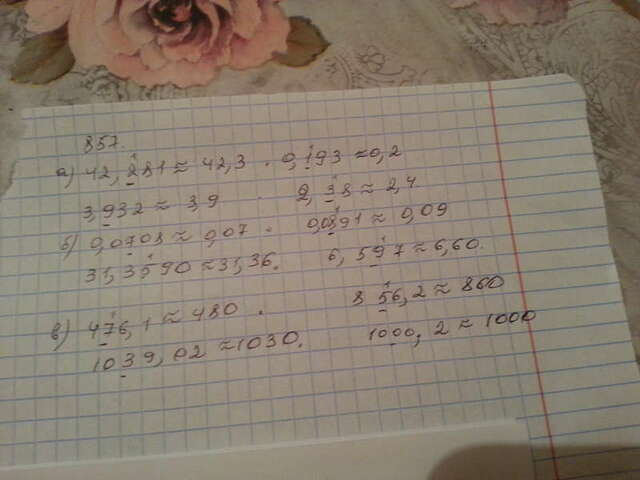 857.
а) 42,281 ≈ 42,3 . 0,193 ≈ 0,2
3,932 ≈ 3,9 . 2,38 ≈ 2,4
б) 0,0703 ≈ 0,07 . 0,0891 ≈ 0,09
31,3590 ≈ 31,36. 6,597 ≈ 6,60.
в) 476,1 ≈ 480 . 856,2 ≈ 860
1039,02 ≈ 1030. 1000,2 ≈ 1000